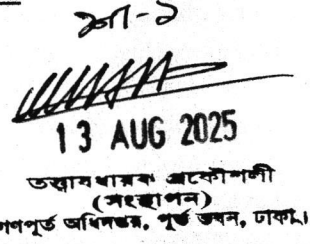 শা-১
13 AUG 2025
তত্ত্বাবধায়ক প্রকৌশলী
(সংস্থাপন)
গণপূর্ত অধিদপ্তর, পূর্ত ভবন, ঢাকা।